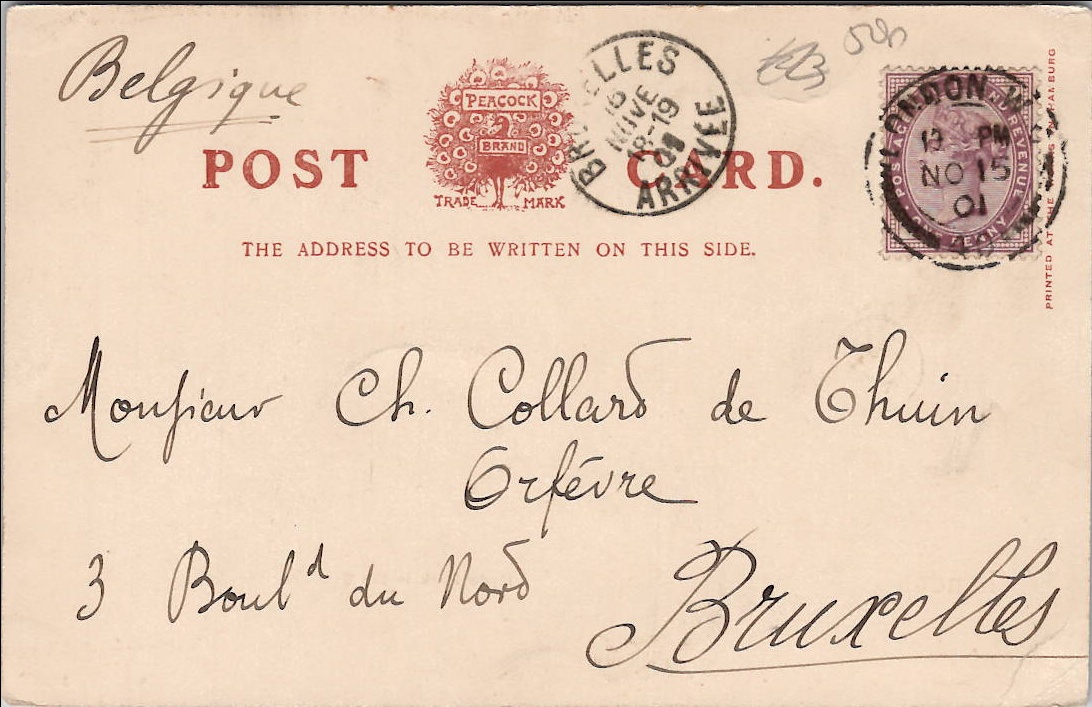 Belgique
POST CARD.
PEACOCK
BRAND
TRADE MARK
THE ADDRESS TO BE WRITTEN ON THIS SIDE.
BRUXELLES
16
NOVE
18-19
01
ARRIVÉE
LONDON W
12 PM
NO 15
01
POSTAGE AND INLAND REVENUE
ONE PENNY
PRINTED AT THE
Monsieur Ch. Collard de Thuin
Orfévre
3 Boulᵈ du Nord
Bruxelles